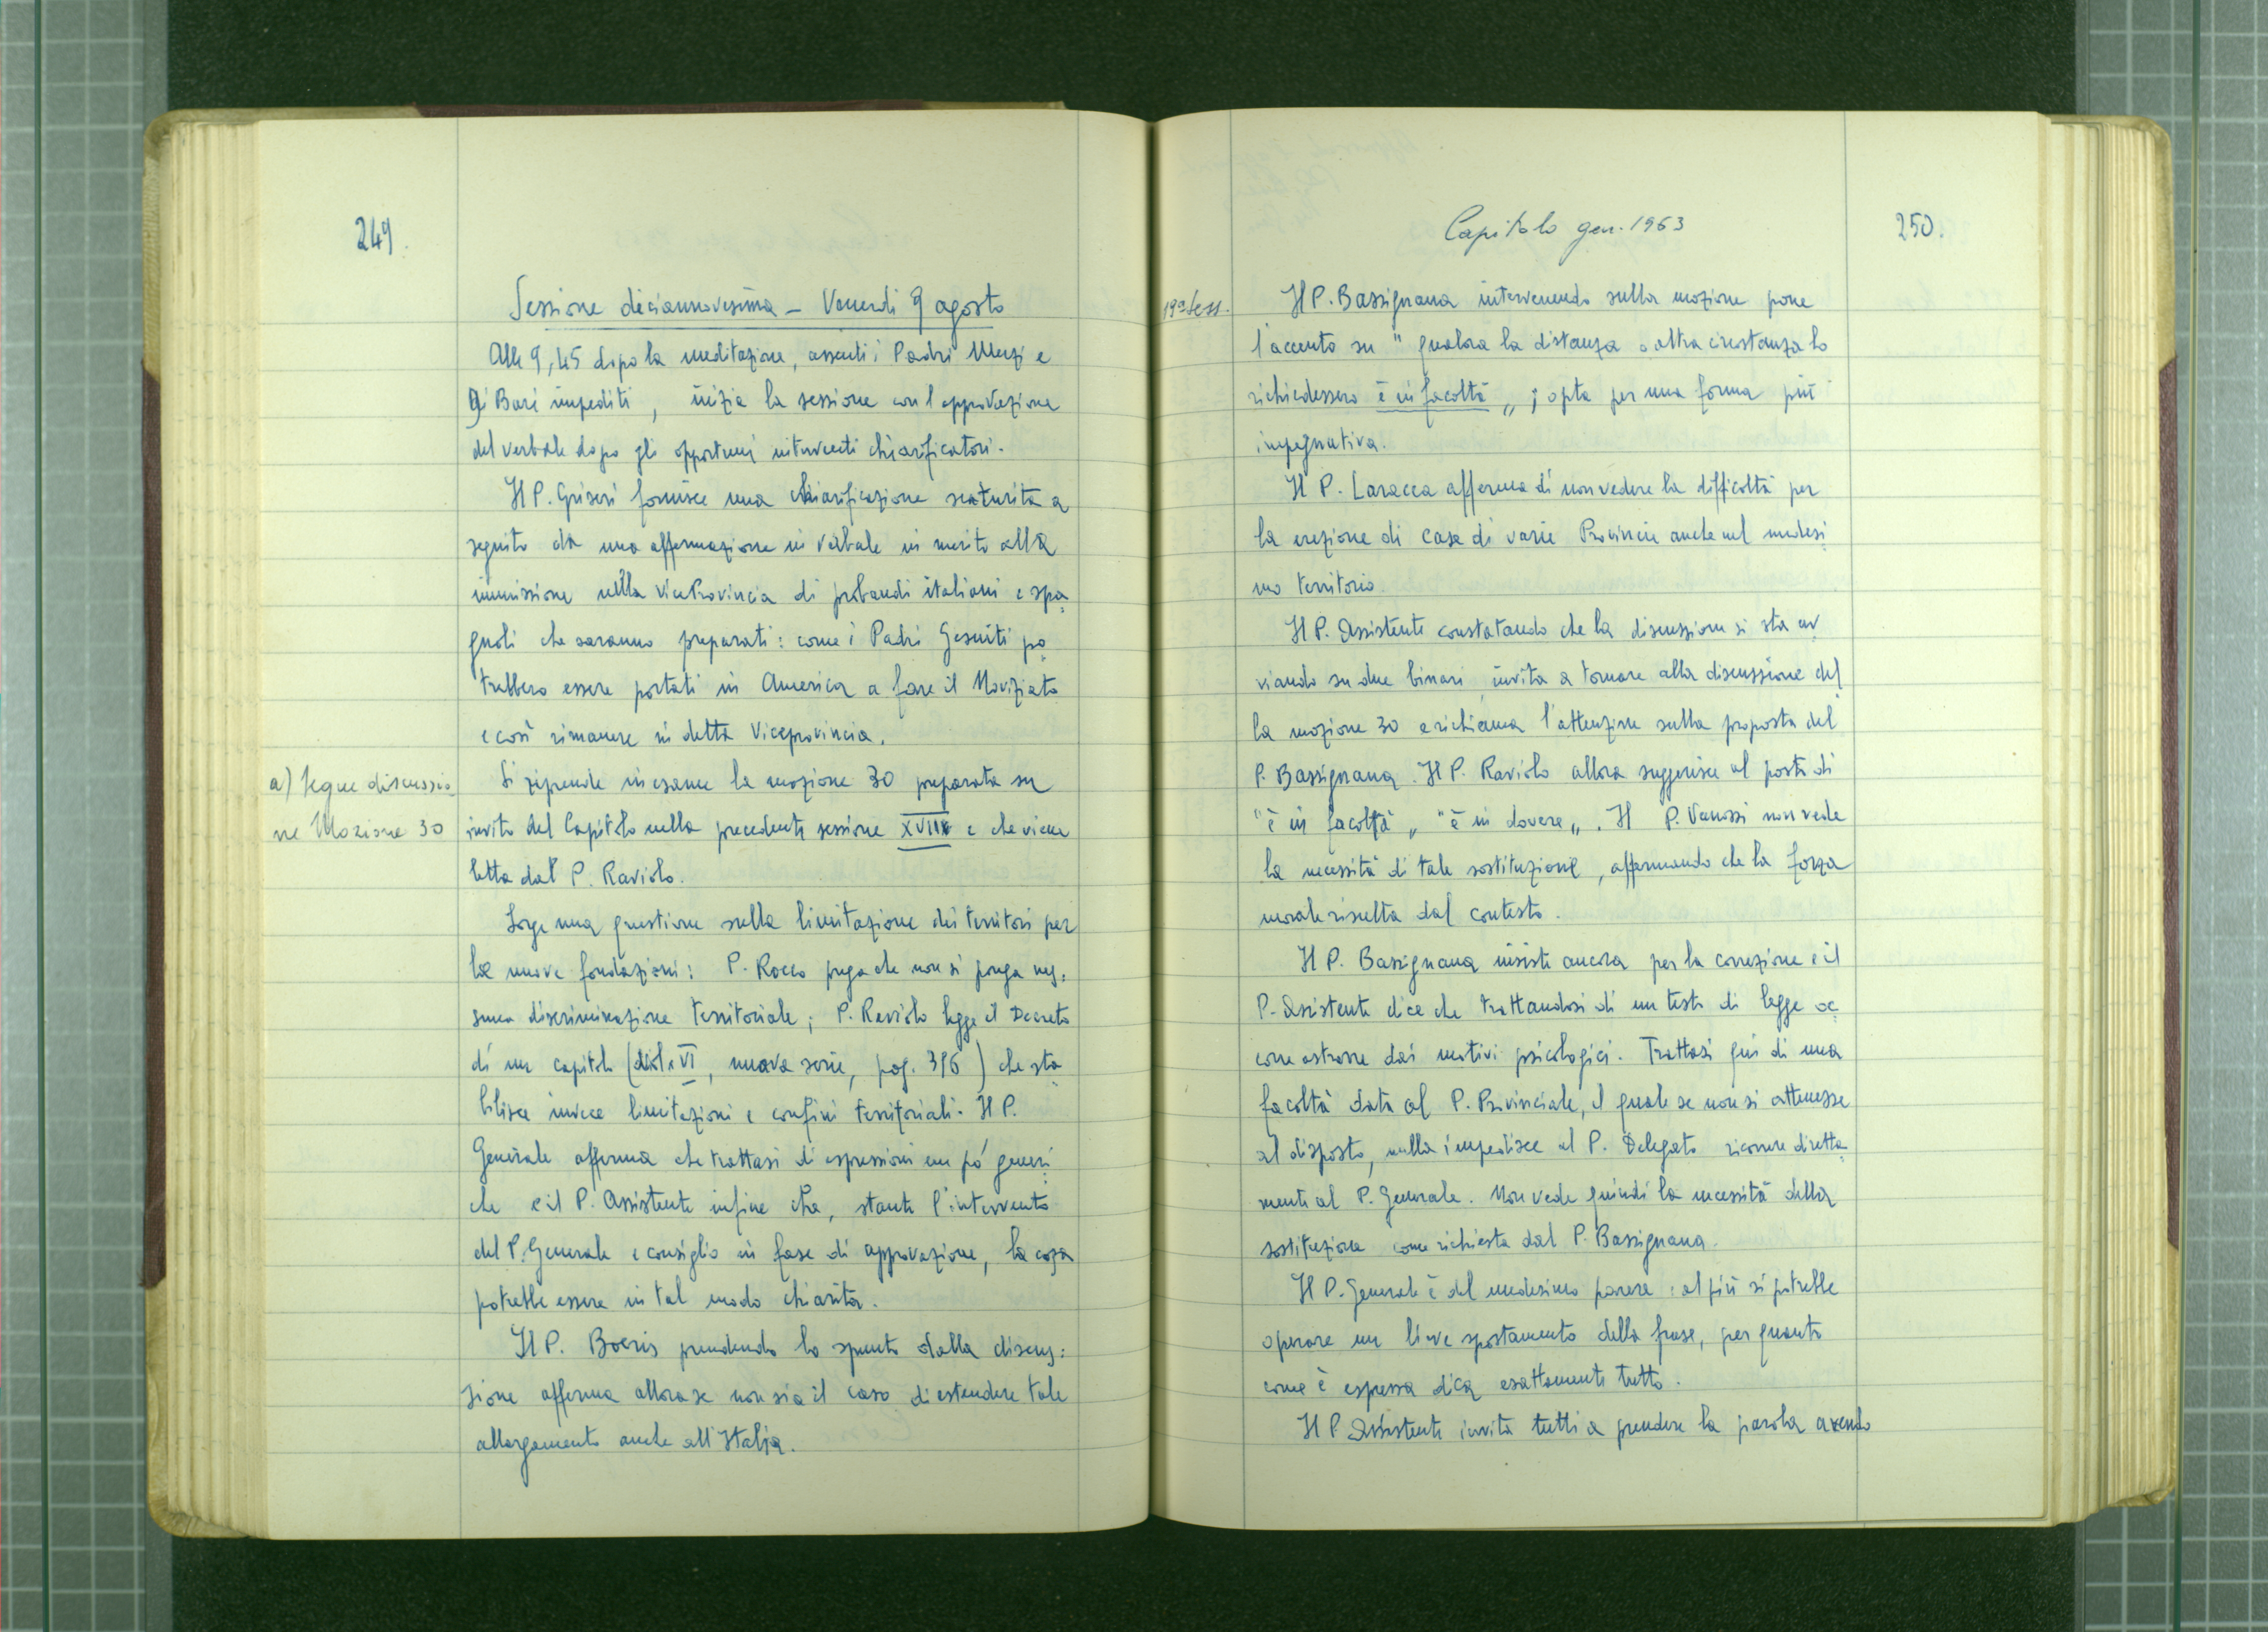 249.
Sessione diciannovesima - Venerdì 9 agosto
Alle 9,45 dopo la meditazione, assenti i Padri Muzi e
Di Bari impediti, inizia la sessione con l'approvazione
del verbale dopo gli opportuni interventi chiarificatori.
Il P. Griseri fornisce una chiarificazione scaturita a
seguito da una affermazione in verbale in merito alla
immissione nella ViceProvincia di probandi italiani e spa
gnoli che saranno preparati: come i Padri Gesuiti po
trebbero essere portati in America a fare il Noviziato
e così rimanere in detta Viceprovincia.
a) Segue discussio
ne Mozione 30
Si riprende in esame la mozione 30 preparata su
invito del Capitolo nella precedente sessione XVIII e che viene
letta dal P. Raviolo.
Sorge una questione sulla limitazione dei territori per
le nuove fondazioni: P. Rocco prega che non si ponga nes:
suna discriminazione territoriale; P. Raviolo legge il Decreto
di un capitolo ( VI, nuova serie, pag. 396) che sta
bilisce invece limitazioni e confini territoriali. Il P.
Generale afferma che trattasi di espressioni un pó generi
che e il P. Assistente infine che, stante l'intervento
del P. Generale e consiglio in fase di approvazione, la cosa
potrebbe essere in tal modo chiarita.
Il P. Boeris prendendo lo spunto dalla discus:
sione afferma allora se non sia il caso di estendere tale
allargamento anche all'Italia.
Capitolo gen. 1963
250.
19ª Sess.
Il P. Bassignana intervenendo sulla mozione pone
l'accento su "qualora la distanza o altra circostanza lo
richiedessero è in facoltà„; opta per una forma più
impegnativa.
Il P. Laracca afferma di non vedere la difficoltà per
la erezione di case di varie Provincie anche nel medesi
mo territorio.
Il P. Assistente constatando che la discussione si sta av
viando su due binari invita a tornare alla discussione del
la mozione 30 e richiama l'attenzione sulla proposta del
P. Bassignana. Il P. Raviolo allora suggerisce al posto di
"è in facoltà„ "è in dovere„. Il P. Vanossi non vede
la necessità di tale sostituzione, affermando che la forza
morale risulta dal contesto.
Il P. Bassignana insiste ancora per la correzione e il
P. Assistente dice che trattandosi di un testo di legge oc
corre astrarre dai motivi psicologici. Trattasi qui di una
facoltà data al P. Provinciale, il quale se non si attenesse
al disposto, nulla impedisce al P. Delegato ricorrere diretta
mente al P. Generale. Non vede quindi la necessità della
sostituzione come richiesta dal P. Bassignana.
Il P. Generale è del medesimo parere: al più si potrebbe
operare un lieve spostamento della frase, per quanto
come è espressa dica esattamente tutto.
Il P. Assistente invita tutti a prendere la parola avendo